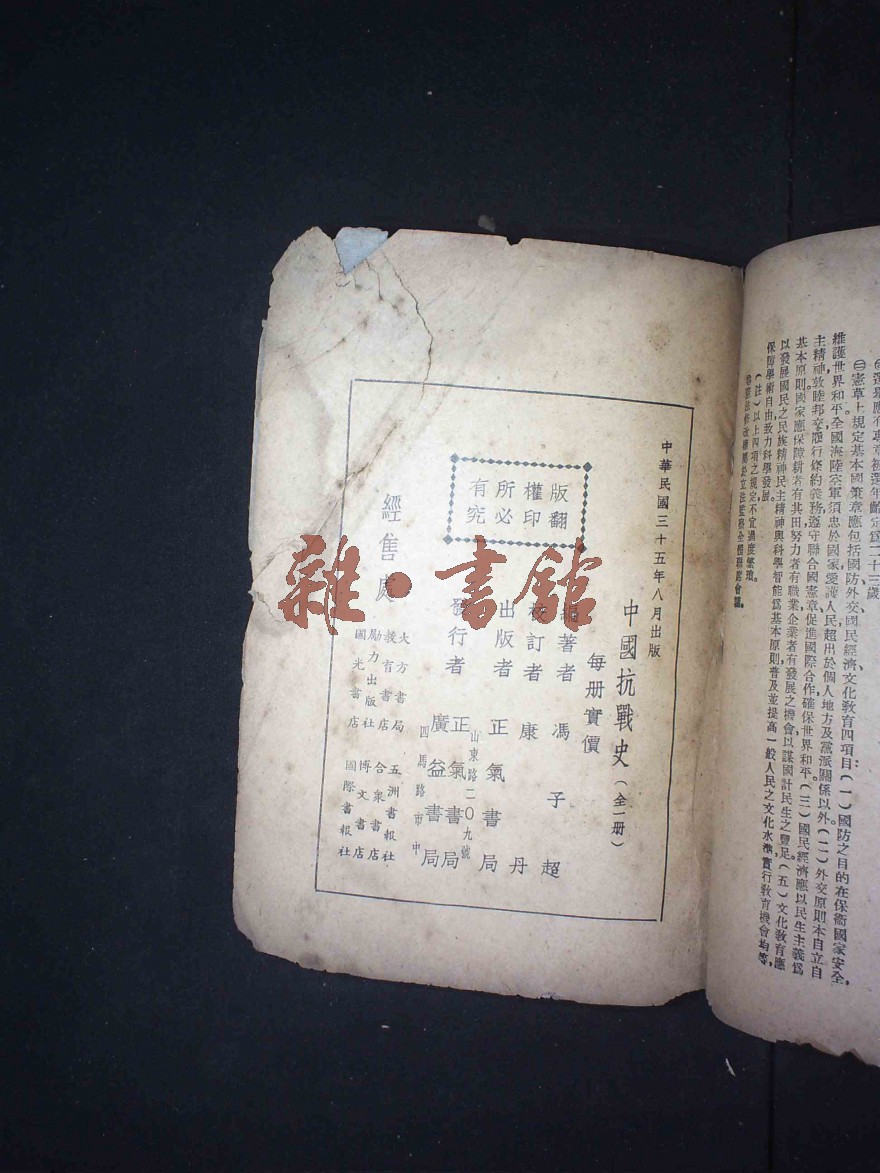 ㊂憲草上規定基本國策章應包括國防外交國民經濟文化敎育四項目:(一)國防之目的在保衞國家安全,
維護世界和平全國海陸空軍須忠於國家愛護人民超出於個人地方及黨派關係以外。(二)外交原則本自立自
主精神,敦睦邦交,履行條約義務,遵守聯合國憲章,促進國際合作確保世界和平。(三)國民經濟應以民生主義爲
基本原則國家應保障耕者有其田努力者有職業企業者有發展之機會以謀國計民生之豐足。(五)文化敎育應
以發展國民之民族精神民主精神與科學智能爲基本原則普及並提高一般人民之文化水準,實行敎育機會均等,
保障學術自由致力科學發展。
(註)以上四項之規定不宜過度繁瑣。
中華民國三十五年八月出版
中國抗戰史(全一册)
每册實價
編著者 馮子超
校訂者 康丹
出版者 正氣書局
山東路二〇九號
發行者 正氣書局
廣益書局
四馬路市中
版權所有
翻印必究
經售處
大方書局 五洲書報社
援有書店 合衆書店
勵力出版社 博文書店
國光書店 國際書報社
雜·書館